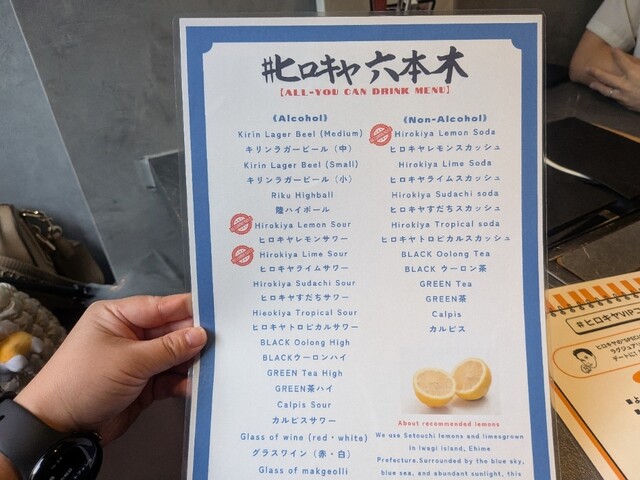 #ヒロキヤ 六本木
【ALL-YOU CAN DRINK MENU】
《Alcohol》
Kirin Lager Beel (Medium)
キリンラガービール（中）
Kirin Lager Beel (Small)
キリンラガービール（小）
Riku Highball
陸ハイボール
Hirokiya Lemon Sour
ヒロキヤレモンサワー
Hirokiya Lime Sour
ヒロキヤライムサワー
Hirokiya Sudachi Sour
ヒロキヤすだちサワー
Hieokiya Tropical Sour
ヒロキヤトロピカルサワー
BLACK Oolong High
BLACKウーロンハイ
GREEN Tea High
GREEN茶ハイ
Calpis Sour
カルピスサワー
Glass of wine (red・white)
グラスワイン（赤・白）
Glass of makgeolli
《Non-Alcohol》
Hirokiya Lemon Soda
ヒロキヤレモンスカッシュ
Hirokiya Lime Soda
ヒロキヤライムスカッシュ
Hirokiya Sudachi soda
ヒロキヤすだちスカッシュ
Hirokiya Tropical soda
ヒロキヤトロピカルスカッシュ
BLACK Oolong Tea
BLACK ウーロン茶
GREEN Tea
GREEN茶
Calpis
カルピス
About recommended lemons
We use Setouchi lemons and limesgrown
in Iwagi Island, Ehime
Prefecture.Surrounded by the blue sky,
blue sea, and abundant sunlight, this
#ヒロキヤVIPコ